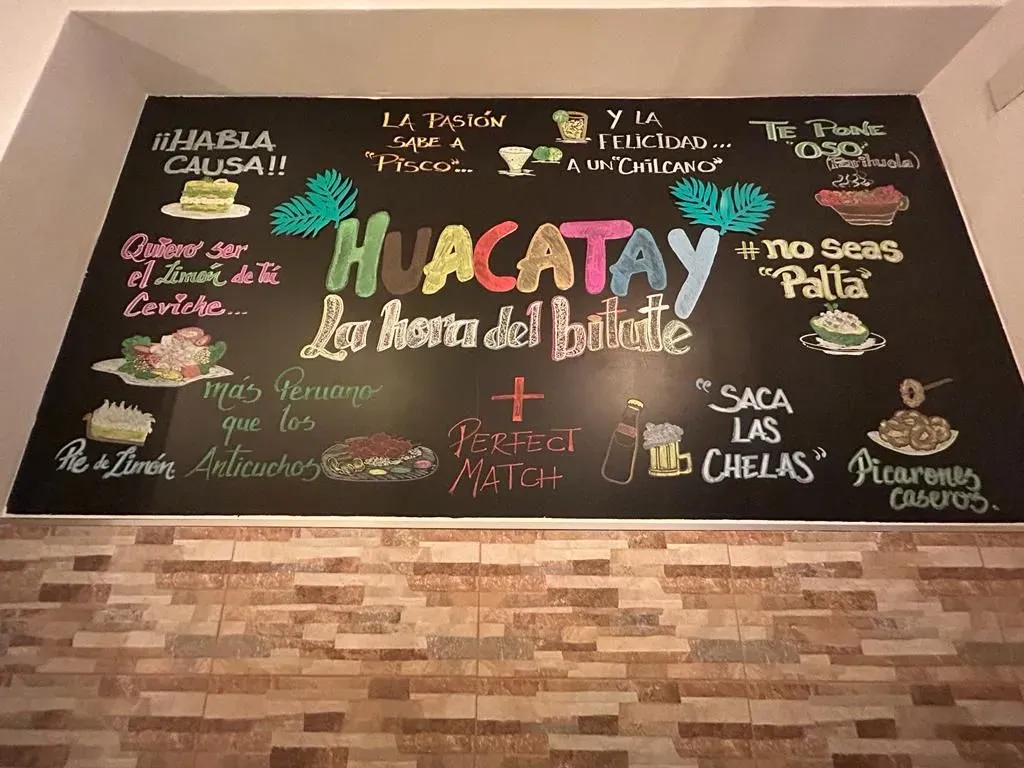 ¡¡HABLA
CAUSA!!
LA PASIÓN
SABE A
"PISCO"...
Y LA
FELICIDAD...
A UN "CHILCANO"
TE PONE
"OSO"
(Parihuela)
Quiero ser
el Limón de tú
Ceviche...
HUACATAY
La hora del bitute
#no seas
"Palta"
más Peruano
que los
Anticuchos
Pie de Limón
+
PERFECT
MATCH
"SACA
LAS
CHELAS"
Picarones
caseros.